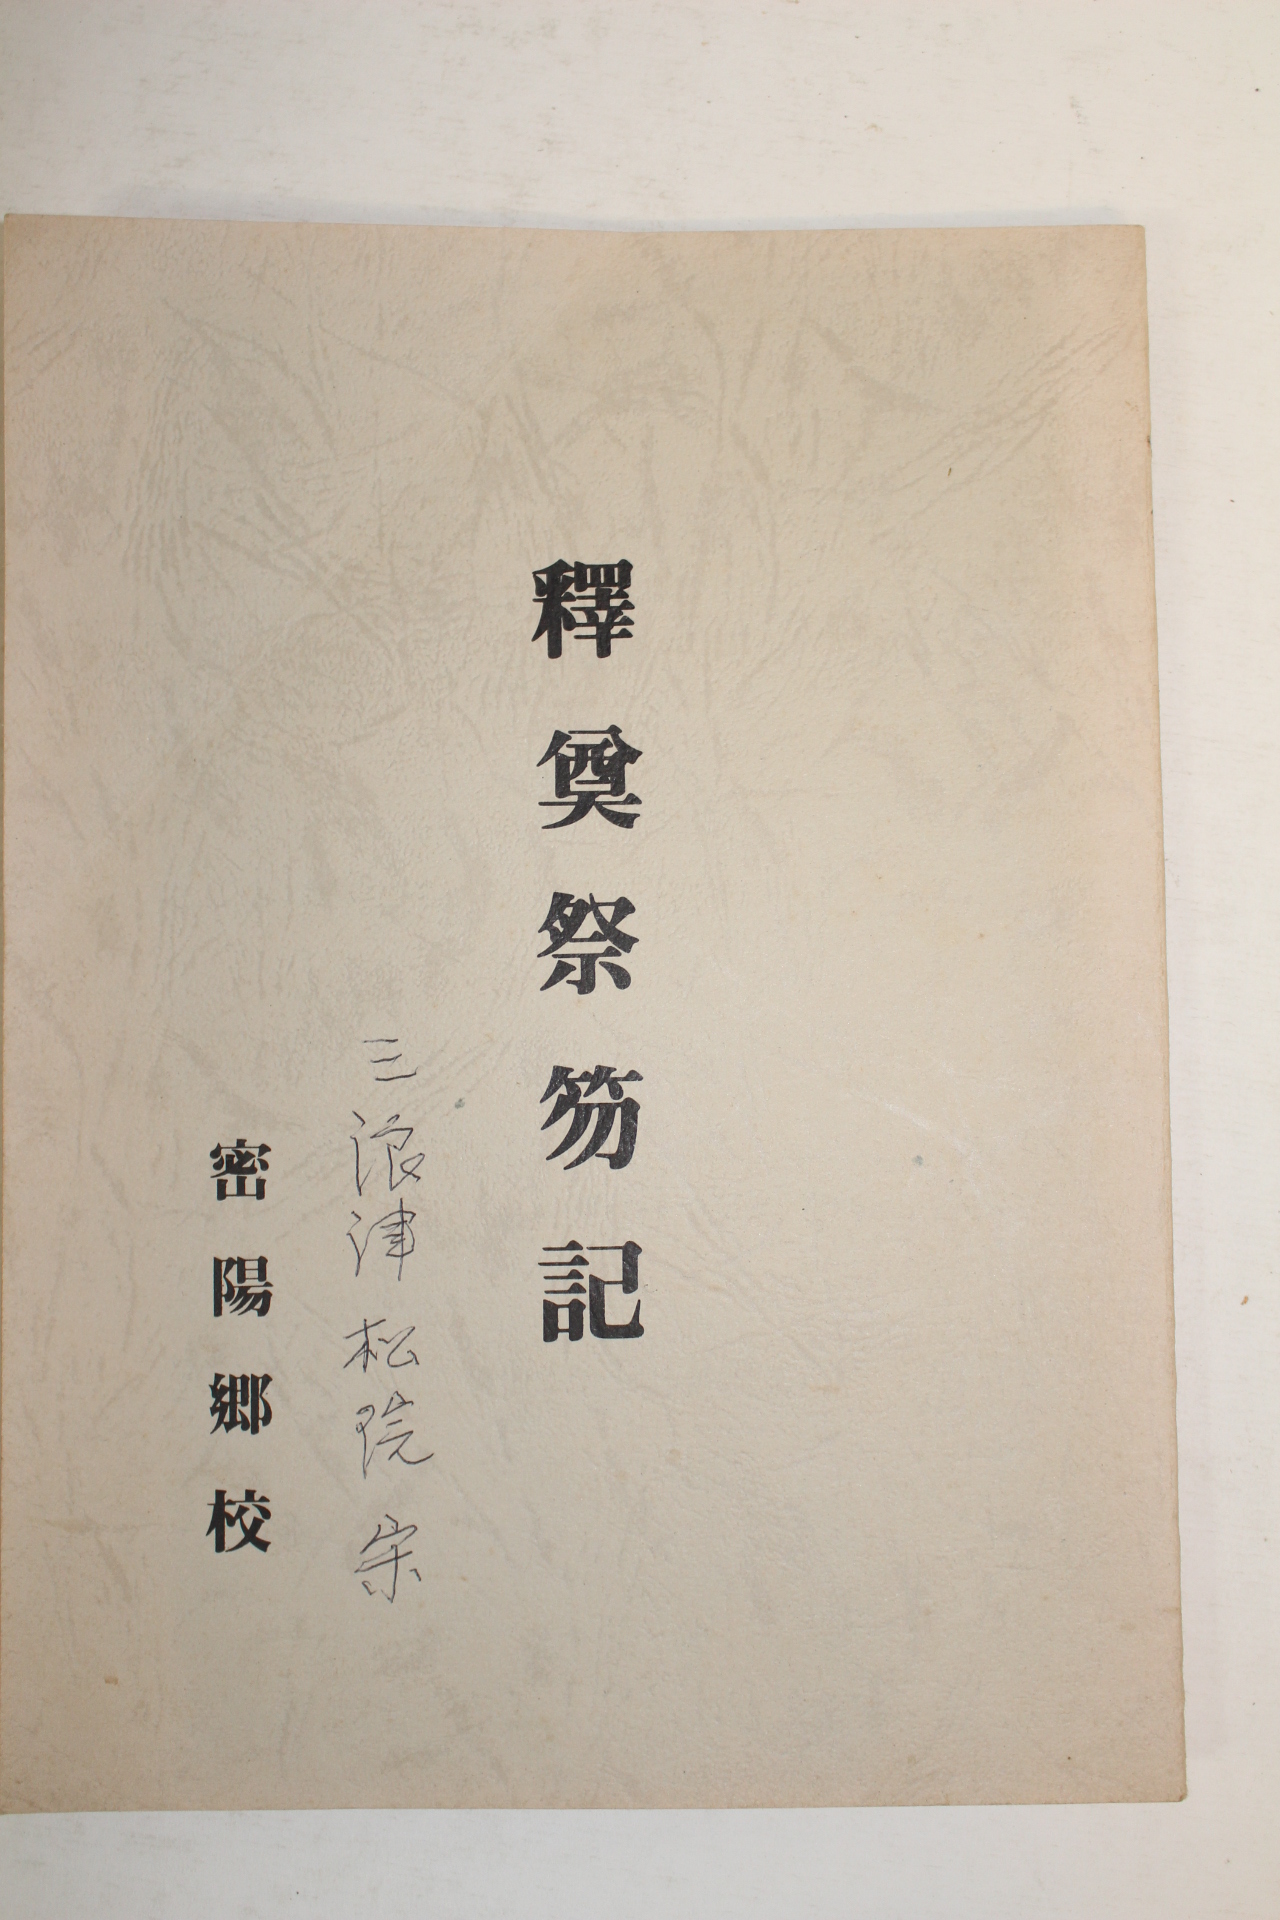 釋奠祭笏記
三浪津 松院 宗
密陽鄉校